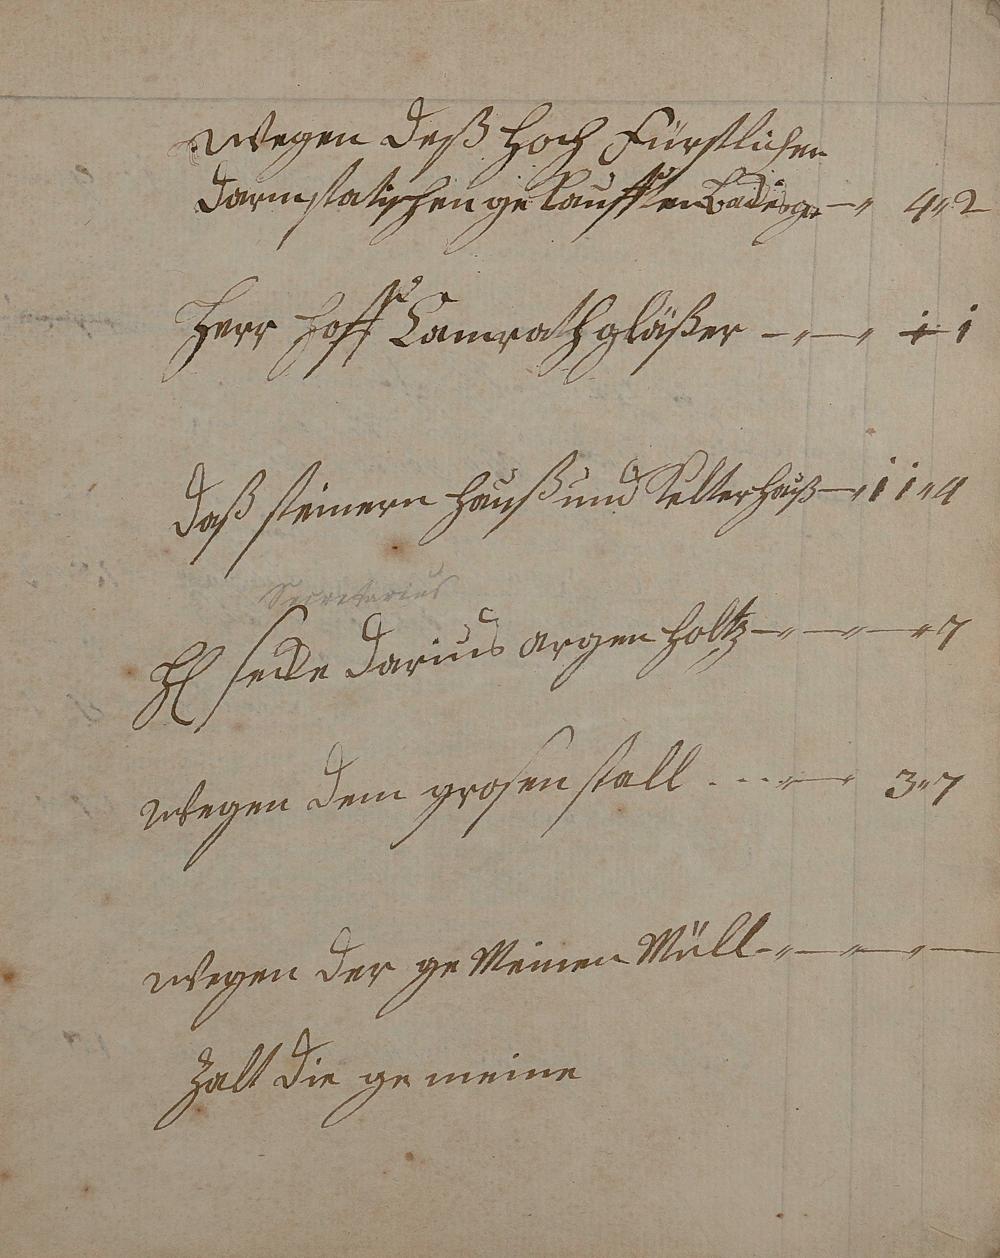 Wegen deß Hoch Fürstlichen
darmstatischen ge Kaufften — " 4 " 2
Herr Hoff Camrath gläßer — " — " 1 1
daß steinern Hauß und Kelterhauß — " 1 1 " 4
Secretarius
H secke darius argen Holtz — " — " — " 7
Wegen dem grosen stall - - - " — " 3 " 7
Wegen der ge Meinen Müll — " — " — " —
Zalt die ge meine